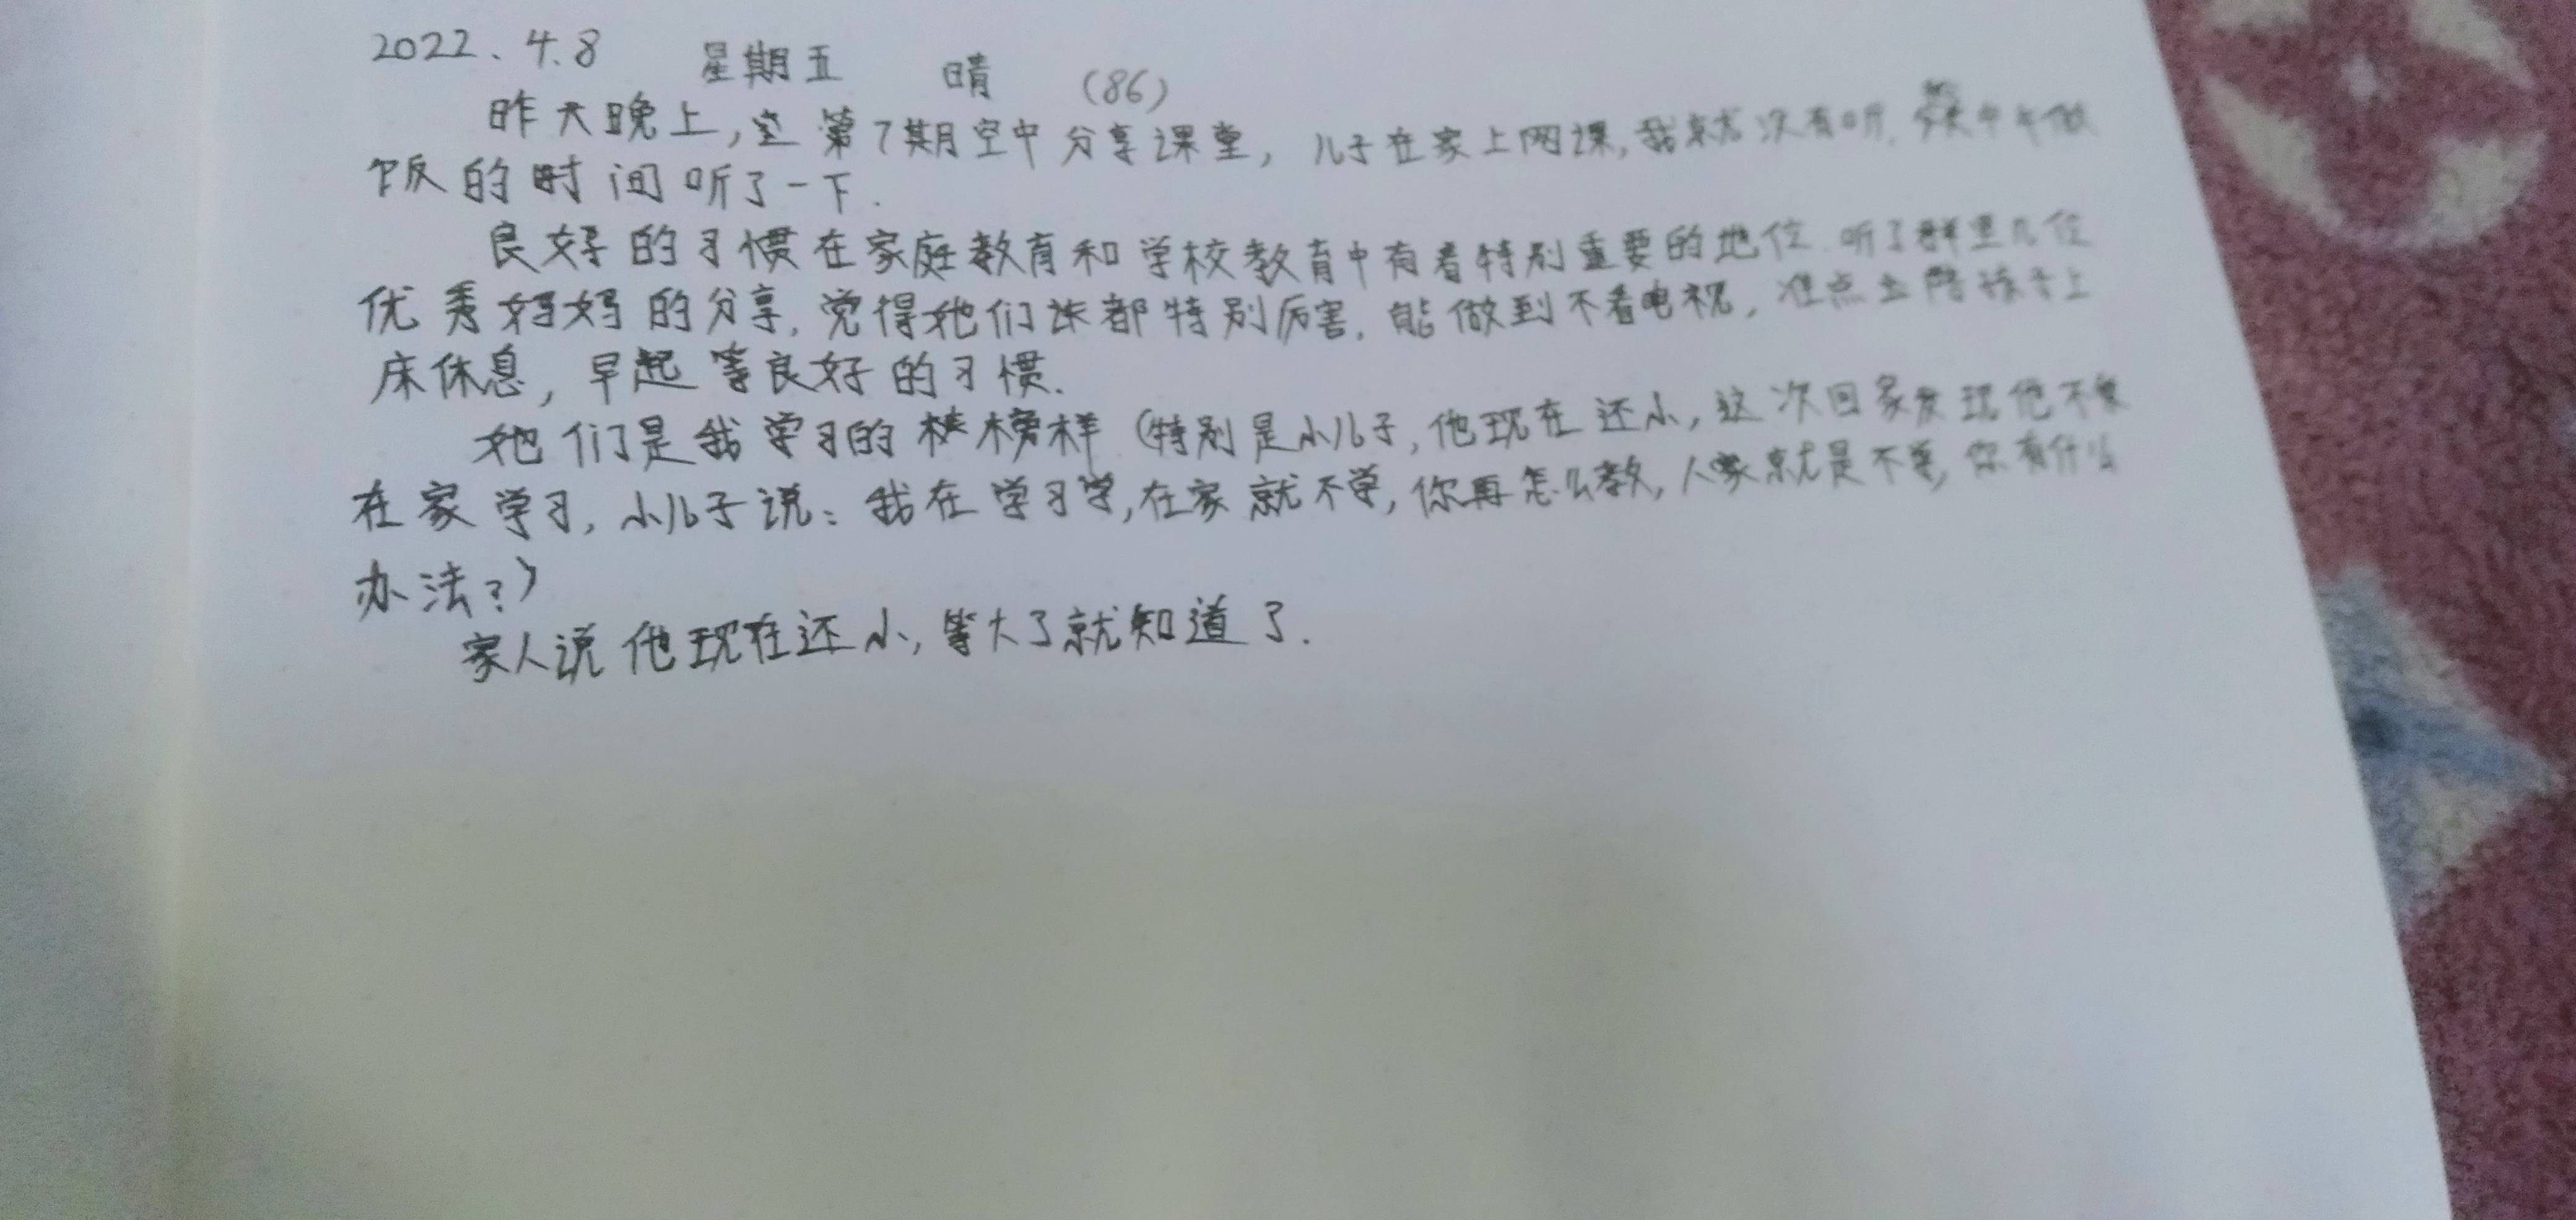 2022.4.8 星期五 晴 (86)
昨天晚上,第7期空中分享课堂,儿子在家上网课,我就没有听.中午做
饭的时间听了一下.
良好的习惯在家庭教育和学校教育中有着特别重要的地位.听了群里几位
优秀妈妈的分享,觉得她们都特别厉害,能做到不看电视,准点陪孩子上
床休息,早起等良好的习惯.
她们是我学习的榜样(特别是小儿子,他现在还小,这次回家发现他不笨
在家学习,小儿子说:我在学习学,在家就不学,你再怎么教,人家就是不学,你有什么
办法?)
家人说他现在还小,等大了就知道了.